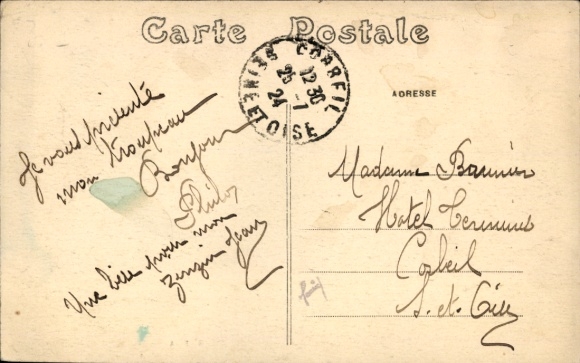 Carte Postale
CORBEIL
SEINE ET OISE
12 30
25 - 7
24
ADRESSE
Je vous présente
mon troupeau
Bonjour
Une bise pour mon
Jean
Madame
Hotel Terminus
Corbeil
S. et Oise